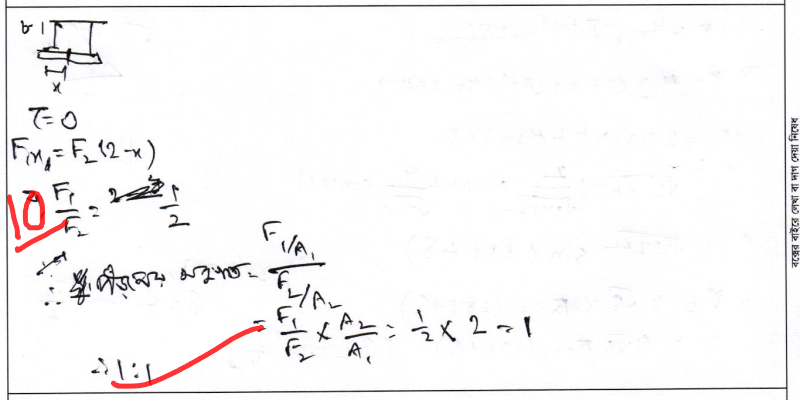 ৮।
x
τ=0
F₁x₁=F₂(2-x)
10
⇒ F₁/F₂ = 1/2
∴ পীড়নের অনুপাত = (F₁/A₁)/(F₂/A₂)
= F₁/F₂ × A₂/A₁ = 1/2 × 2 = 1
∴ 1:1
বক্সের বাইরে লেখা বা দাগ দেয়া নিষেধ